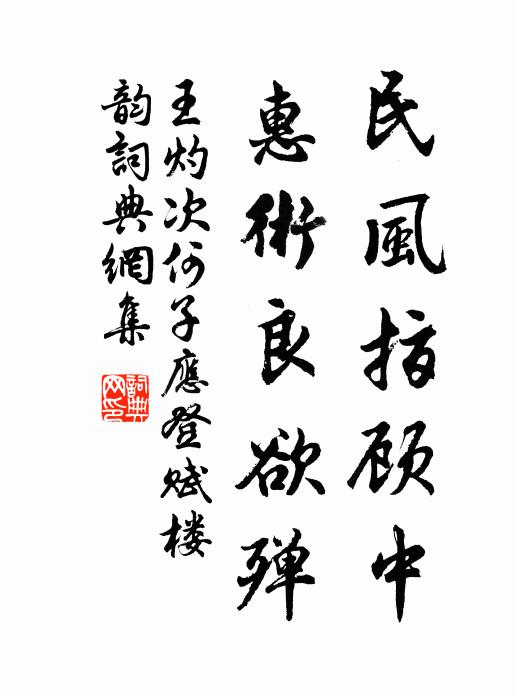 民風指顾中
惠術良欲殫
王灼次何子應登赋楼
韵詞典網集
詞典
网印